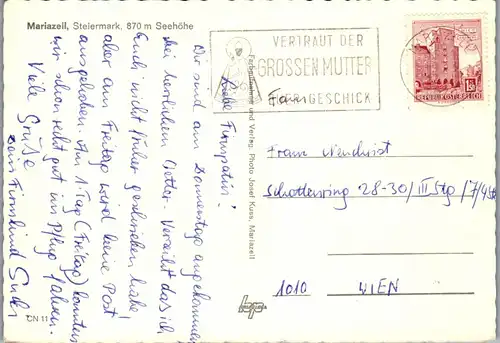 Mariazell, Steiermark, 870 m Seehöhe
VERTRAUT DER
GROSSEN MUTTER
EUER GESCHICK
REPUBLIK ÖSTERREICH
Liebe Firmpatin!
Wir sind am Donnerstag angekommen
bei herrlichem Wetter. Verzeiht das ich
Euch nicht früher geschrieben habe!
aber am Freitag wird keine Post
ausgehoben. Am 1 Tag (Freitag) konnten
wir schon recht gut im Pflug fahren.
Viele Grüße
Dein Firmkind
CN 11
Verlag: Photo Josef Kuss, Mariazell
bp
Frau
Schottenring 28-30/III Stg/7/45
1010 WIEN